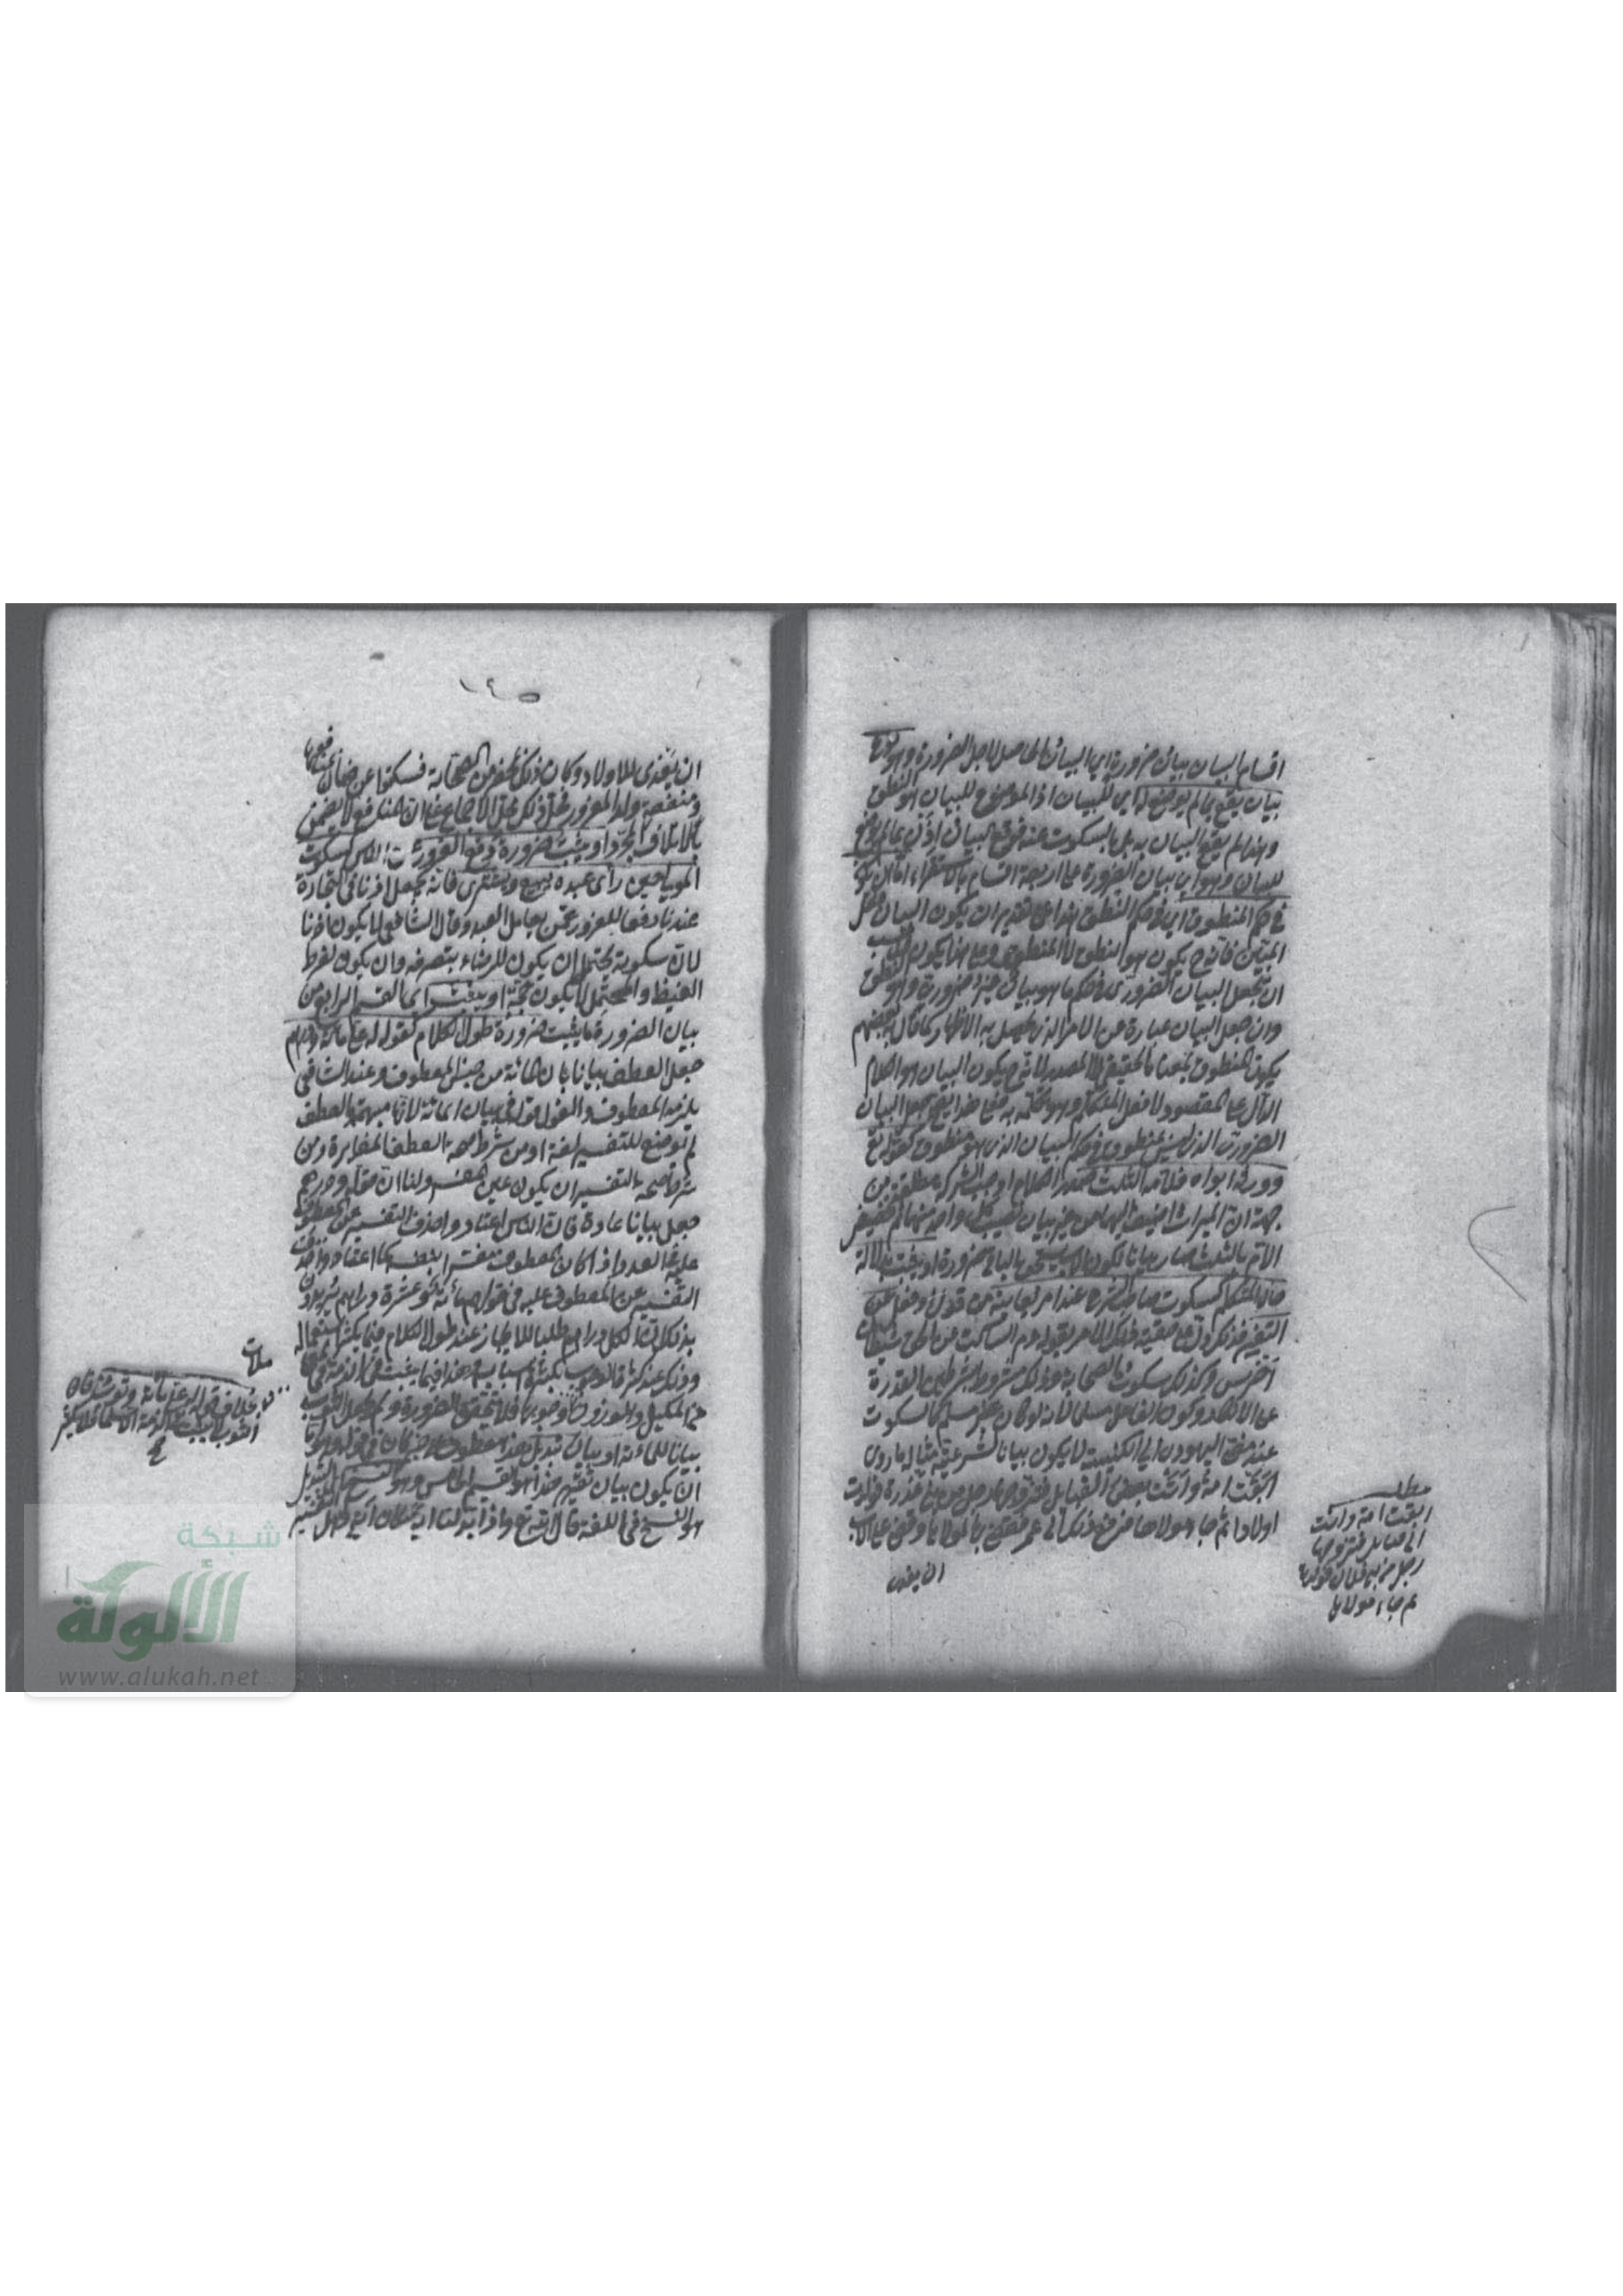 اقسام البيان بيان ضرورة اي البيان الحاصل لاجل الضرورة وهو نوع
بيان يقع بما لم يوضع له اي للبيان اذ الموضوع للبيان هو النطق
وهذا لم يقع البيان به بل بالسكوت عنه فوقع البيان اذن بما لم يوضع
للبيان وهو اي بيان الضرورة على اربعة اقسام بالاستقراء اما ان يكون
في حكم المنطوق اي في حكم النطق هذا على تقدير ان يكون البيان فعل
المبين فانه ح يكون هو النطق لا المنطوق وعلى هذا يكون
ان يجعل البيان الضروري في حكم ما هو بيان غير ضرورة وهو النطق
وان جعل البيان عبارة عن الامر الذي يحصل به الاظهار كما قال به بعضهم
يكون المنطوق بمعناه الحقيقي لا المصدر لانه ح يكون البيان هو الكلام
الدال على المقصود لا فعل المتكلم وهو تكلمه به فعلى هذا يجعل البيان
الضروري الذي ليس بمنطوق في حكم البيان الذي هو منطوق كقوله تع
وورثه ابواه فلامه الثلث صدر الكلام اوجب الشركة مطلقة من
جهة ان الميراث اضيف اليهما من غير بيان نصيب كل واحد منهما ثم تخصيص
الام بالثلث صار بيانا لكون الاب يستحق الباقي ضرورة او يثبت بدلالة
حال المتكلم كسكوت صاحب الشرع عند امر يعاينه من قول وفعل عن
التغيير فذلك دل على حقية ذلك الامر بقوله عم الساكت عن الحق شيطان
اخرس وكذلك سكوت الصحابة وذلك مشروط بشرطين القدرة
على الانكار وكون الفاعل مسلما لانه لو كان غير مسلم كالسكوت
عند مضي اليهودي الى الكنيسة لا يكون بيانا لشرعيته مثاله ما روي
ابقت امة واتت بعض القبايل فتزوجها رجل من بني عذرة فولدت
اولادا ثم جاء مولاها فرفع ذلك الى عمر فقضى بها لمولاها وقضى على الاب
ان يفدى
مطلب
ابقت امة واتت
الى قبايل فتزوجها
رجل من بني فولدت
ثم جاء مولاها
١٤٥
ان يفدى للاولاد وكان ذلك بمحضر من الصحابة فسكتوا عن ضمان
منفعة ولد المغرور فحل ذلك محل الاجماع على ان المنافع لا يضمن
بالاتلاف المجرد او يثبت ضرورة دفع الغرور عن الناس كسكوت
المولى حين رأى عبده يبيع ويشترى فانه يجعل اذنا في التجارة
عندنا دفعا للغرور عمن يعامل العبد وقال الشافعى لا يكون اذنا
لان سكوته يحتمل ان يكون للرضاء بتصرفه وان يكون لفرط
الغيظ والمحتمل لا يكون حجة او يثبت اى القسم الرابع من
بيان الضرورة ما يثبت ضرورة طول الكلام كقوله له على مائة ودرهم
جعل العطف بيانا بان المائة من جنس المعطوف وعند الشافعى
يلزمه المعطوف والقول قوله فى بيان المائة لانها مبهمة والعطف
لم يوضع للتفسير لغة اذ من شرط صحة العطف المغايرة ومن
شرط صحة التفسير ان يكون عين المفسر ولنا ان قوله ودرهم
جعل بيانا عادة فان الناس اعتادوا حذف التفسير عن المعطوف
عليه فى العدد اذا كان المعطوف مفسرا بنفسه كما اعتادوا حذف
التفسير عن المعطوف عليه فى قولهم مائة وعشرة دراهم يريدون
بذلك ان الكل دراهم طلبا للايجاز عند طول الكلام فيما يكثر استعماله
وذلك عند كثرة الوجوب بكثرة اسبابه وهذا فيما يثبت فى الذمة فى
كالمكيل والموزون فلا تتحقق الضرورة ولم يجعل الثوب
بيانا للمائة او بيان تبديل هذا معطوف على خبر كان فى قوله اما
ان يكون بيان تقرير هذا هو القسم الخامس وهو النسخ التبديل
هو النسخ فى اللغة قال الله تع واذا بدلنا اية مكان اية
معاملات
بخلاف قوله على مائة وثوب فان
الثوب لا يثبت فى الذمة الا سلما فلا يكثر